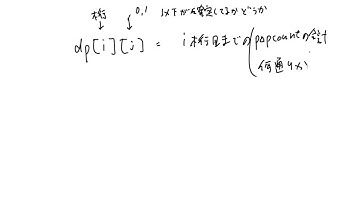 桁 0,1 以下が確定してるかどうか
↓ ↓
dp[i][j] = i 桁目までの popcountの合計
何通りか